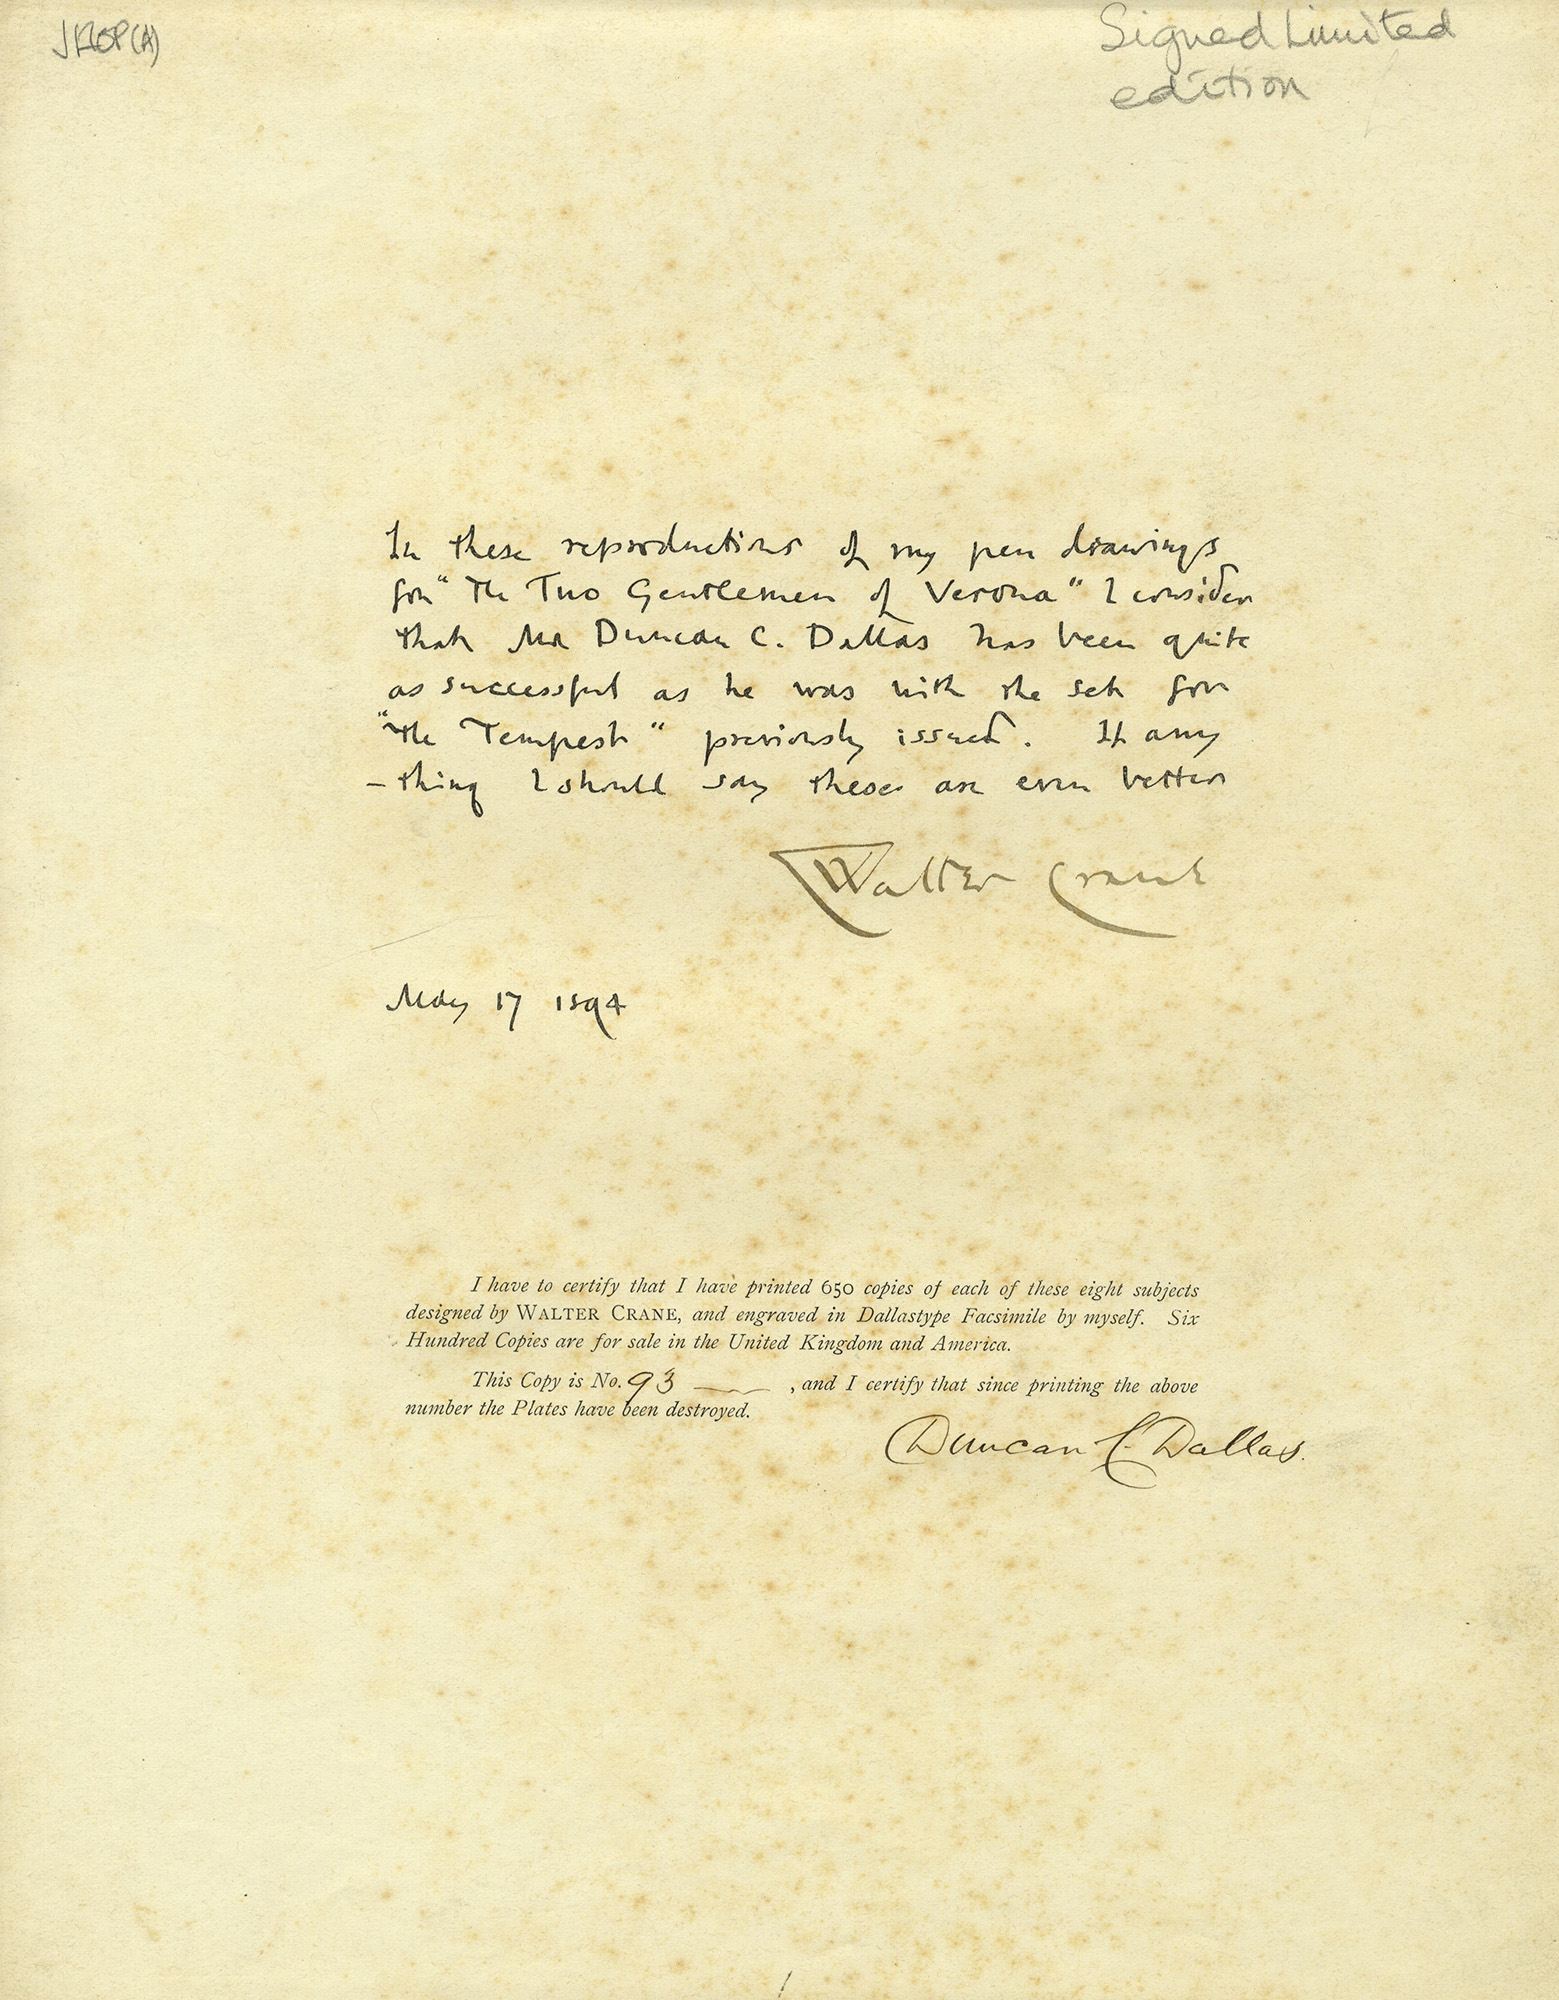 Signed Limited
edition
In these reproductions of my pen drawings
for "The Two Gentlemen of Verona" I consider
that Mr Duncan C. Dallas has been quite
as successful as he was with the set for
"The Tempest" previously issued. If any
-thing I should say these are even better
Walter Crane
May 17 1894
I have to certify that I have printed 650 copies of each of these eight subjects
designed by WALTER CRANE, and engraved in Dallastype Facsimile by myself. Six
Hundred Copies are for sale in the United Kingdom and America.
This Copy is No. 93 , and I certify that since printing the above
number the Plates have been destroyed.
Duncan C. Dallas.